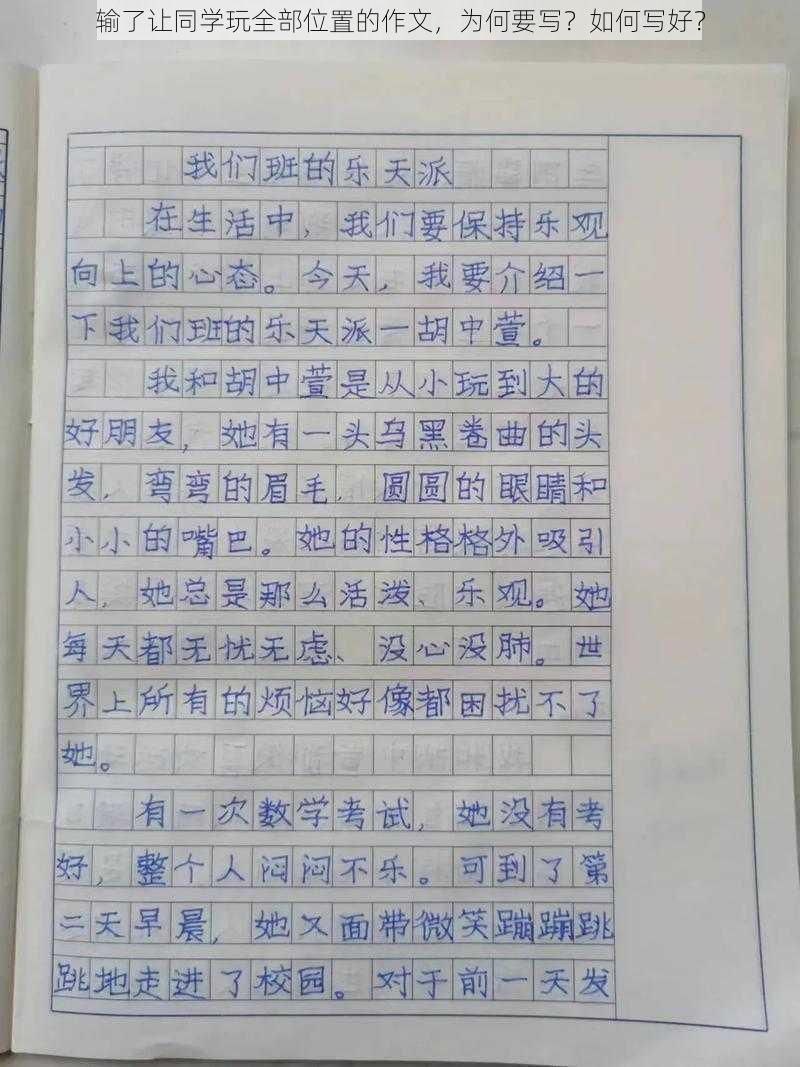 输了让同学玩全部位置的作文，为何要写？如何写好？
我们班的乐天派
在生活中，我们要保持乐观
向上的心态。今天，我要介绍一
下我们班的乐天派一胡中萱。
我和胡中萱是从小玩到大的
好朋友，她有一头乌黑卷曲的头
发，弯弯的眉毛，圆圆的眼睛和
小小的嘴巴。她的性格格外吸引
人，她总是那么活泼、乐观。她
每天都无忧无虑、没心没肺。世
界上所有的烦恼好像都困扰不了
她。
有一次数学考试，她没有考
好，整个人闷闷不乐。可到了第
二天早晨，她又面带微笑蹦蹦跳
跳地走进了校园。对于前一天发